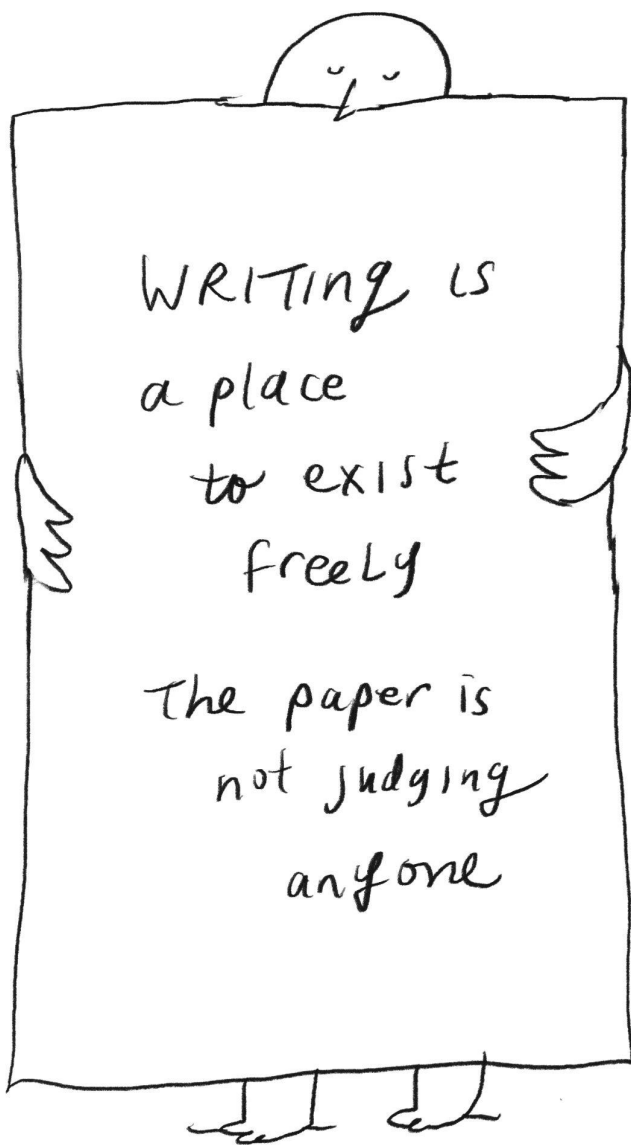 WRITing is
a place
to exist
freeLy
The paper is
not judging
anyone